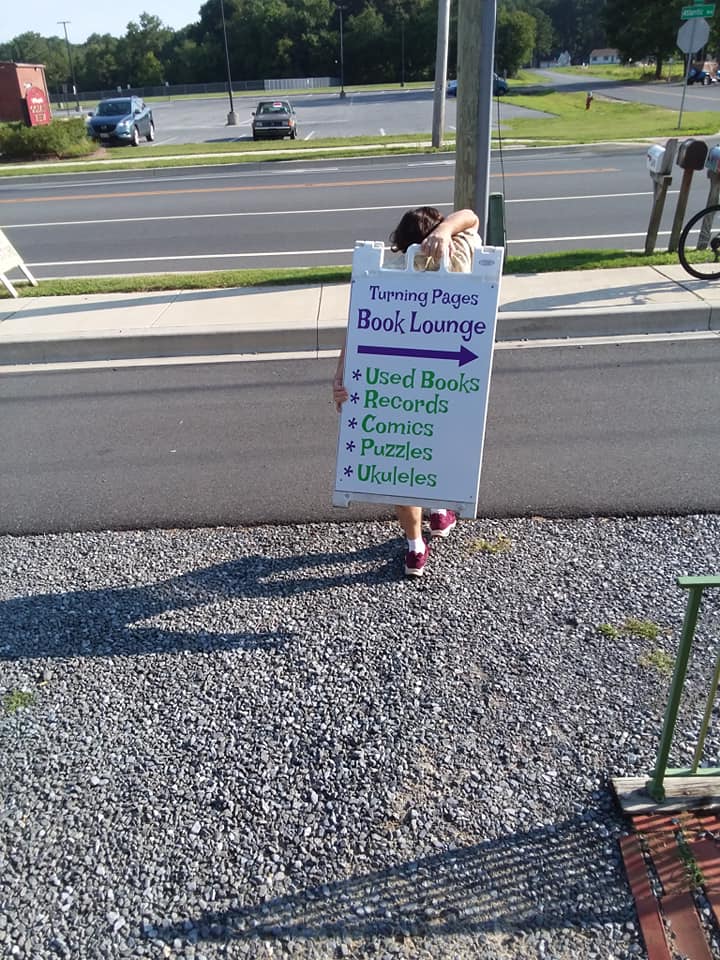 Turning Pages
Book Lounge
* Used Books
* Records
* Comics
* Puzzles
* Ukuleles
Atlantic